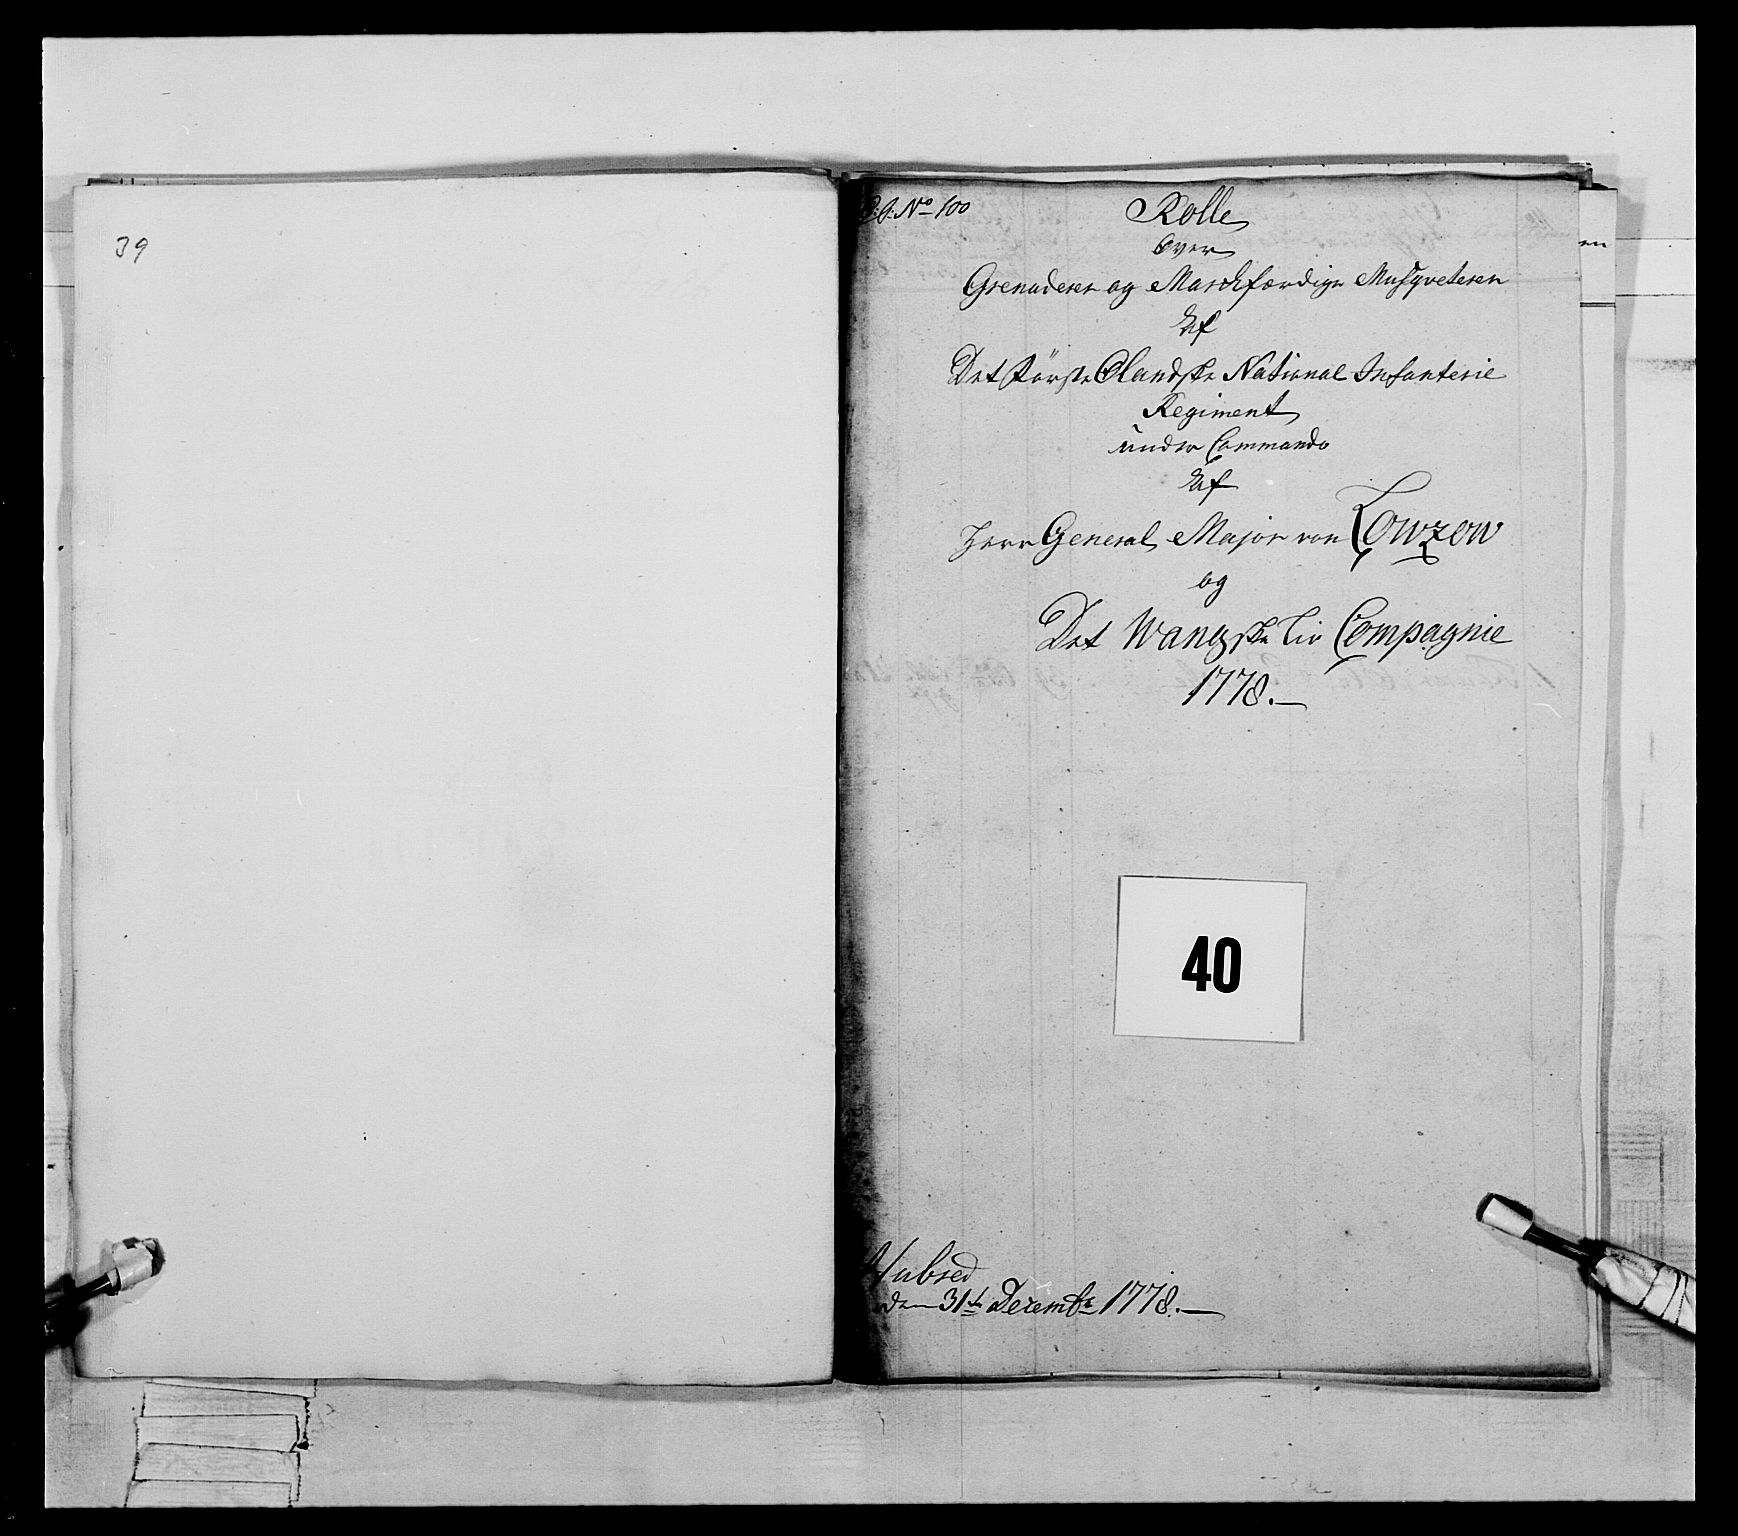 39
No 100
Rolle
Over
Grenaderer og Marchfærdige Musqveterer
Af
Det Første Oplandske National Infanterie
Regiment
under Commando
Af
Herr General Major von Lowzow
og
Det Wangske Liv Compagnie
1778.
40
den 31te Decembr 1778.
en